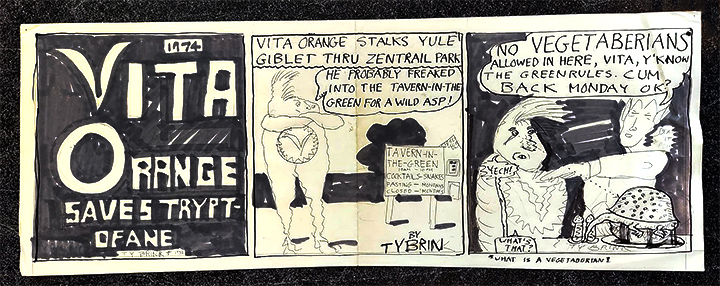 1974
VITA
ORANGE
SAVES TRYPT-
OFANE
TY BRINK
VITA ORANGE STALKS YULE
GIBLET THRU ZENTRAIL PARK
HE PROBABLY FREAKED
INTO THE TAVERN-IN-THE
GREEN FOR A WILD ASP!
V
TAVERN-IN-
THE-GREEN
COCKTALS-SNAKES
PASTING - MONDAYS
CLOSED - MONDAYS
BY
TYBRINK
NO VEGETABERIANS
ALLOWED IN HERE, VITA, Y'KNOW
THE GREENRULES. CUM
BACK MONDAY OK?
YECH!
WHAT'S
THAT?
TYBRINK
*WHAT IS A VEGETABORIAN?